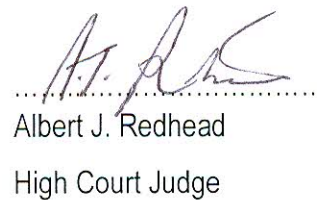 Albert J. Redhead
High Court Judge